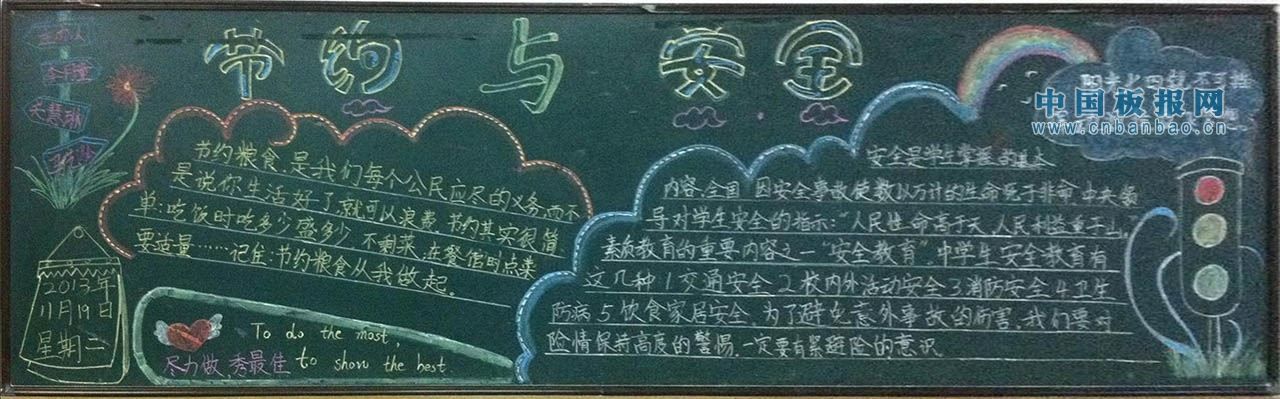 节约与安全
节约粮食，是我们每个公民应尽的义务，而不
是说你生活好了，就可以浪费。节约其实很简
单：吃饭时吃多少盛多少，不剩菜，在餐馆时点菜
要适量……记住：节约粮食从我做起。
2013年
11月19日
星期二
To do the most,
尽力做,秀最佳 to show the best.
安全是学生掌握的基本
内容,全国 因安全事故使数以万计的生命死于非命,中央领
导对学生安全的指示：“人民性命高于天,人民利益重于山。”
素质教育的重要内容之一“安全教育”.中学生安全教育有
这几种 1交通安全 2校内外活动安全 3消防安全 4卫生
防病 5饮食家居安全,为了避免意外事故的伤害,我们要对
险情保持高度的警惕,一定要有紧避险的意识
中国板报网
www.cnbanbao.cn